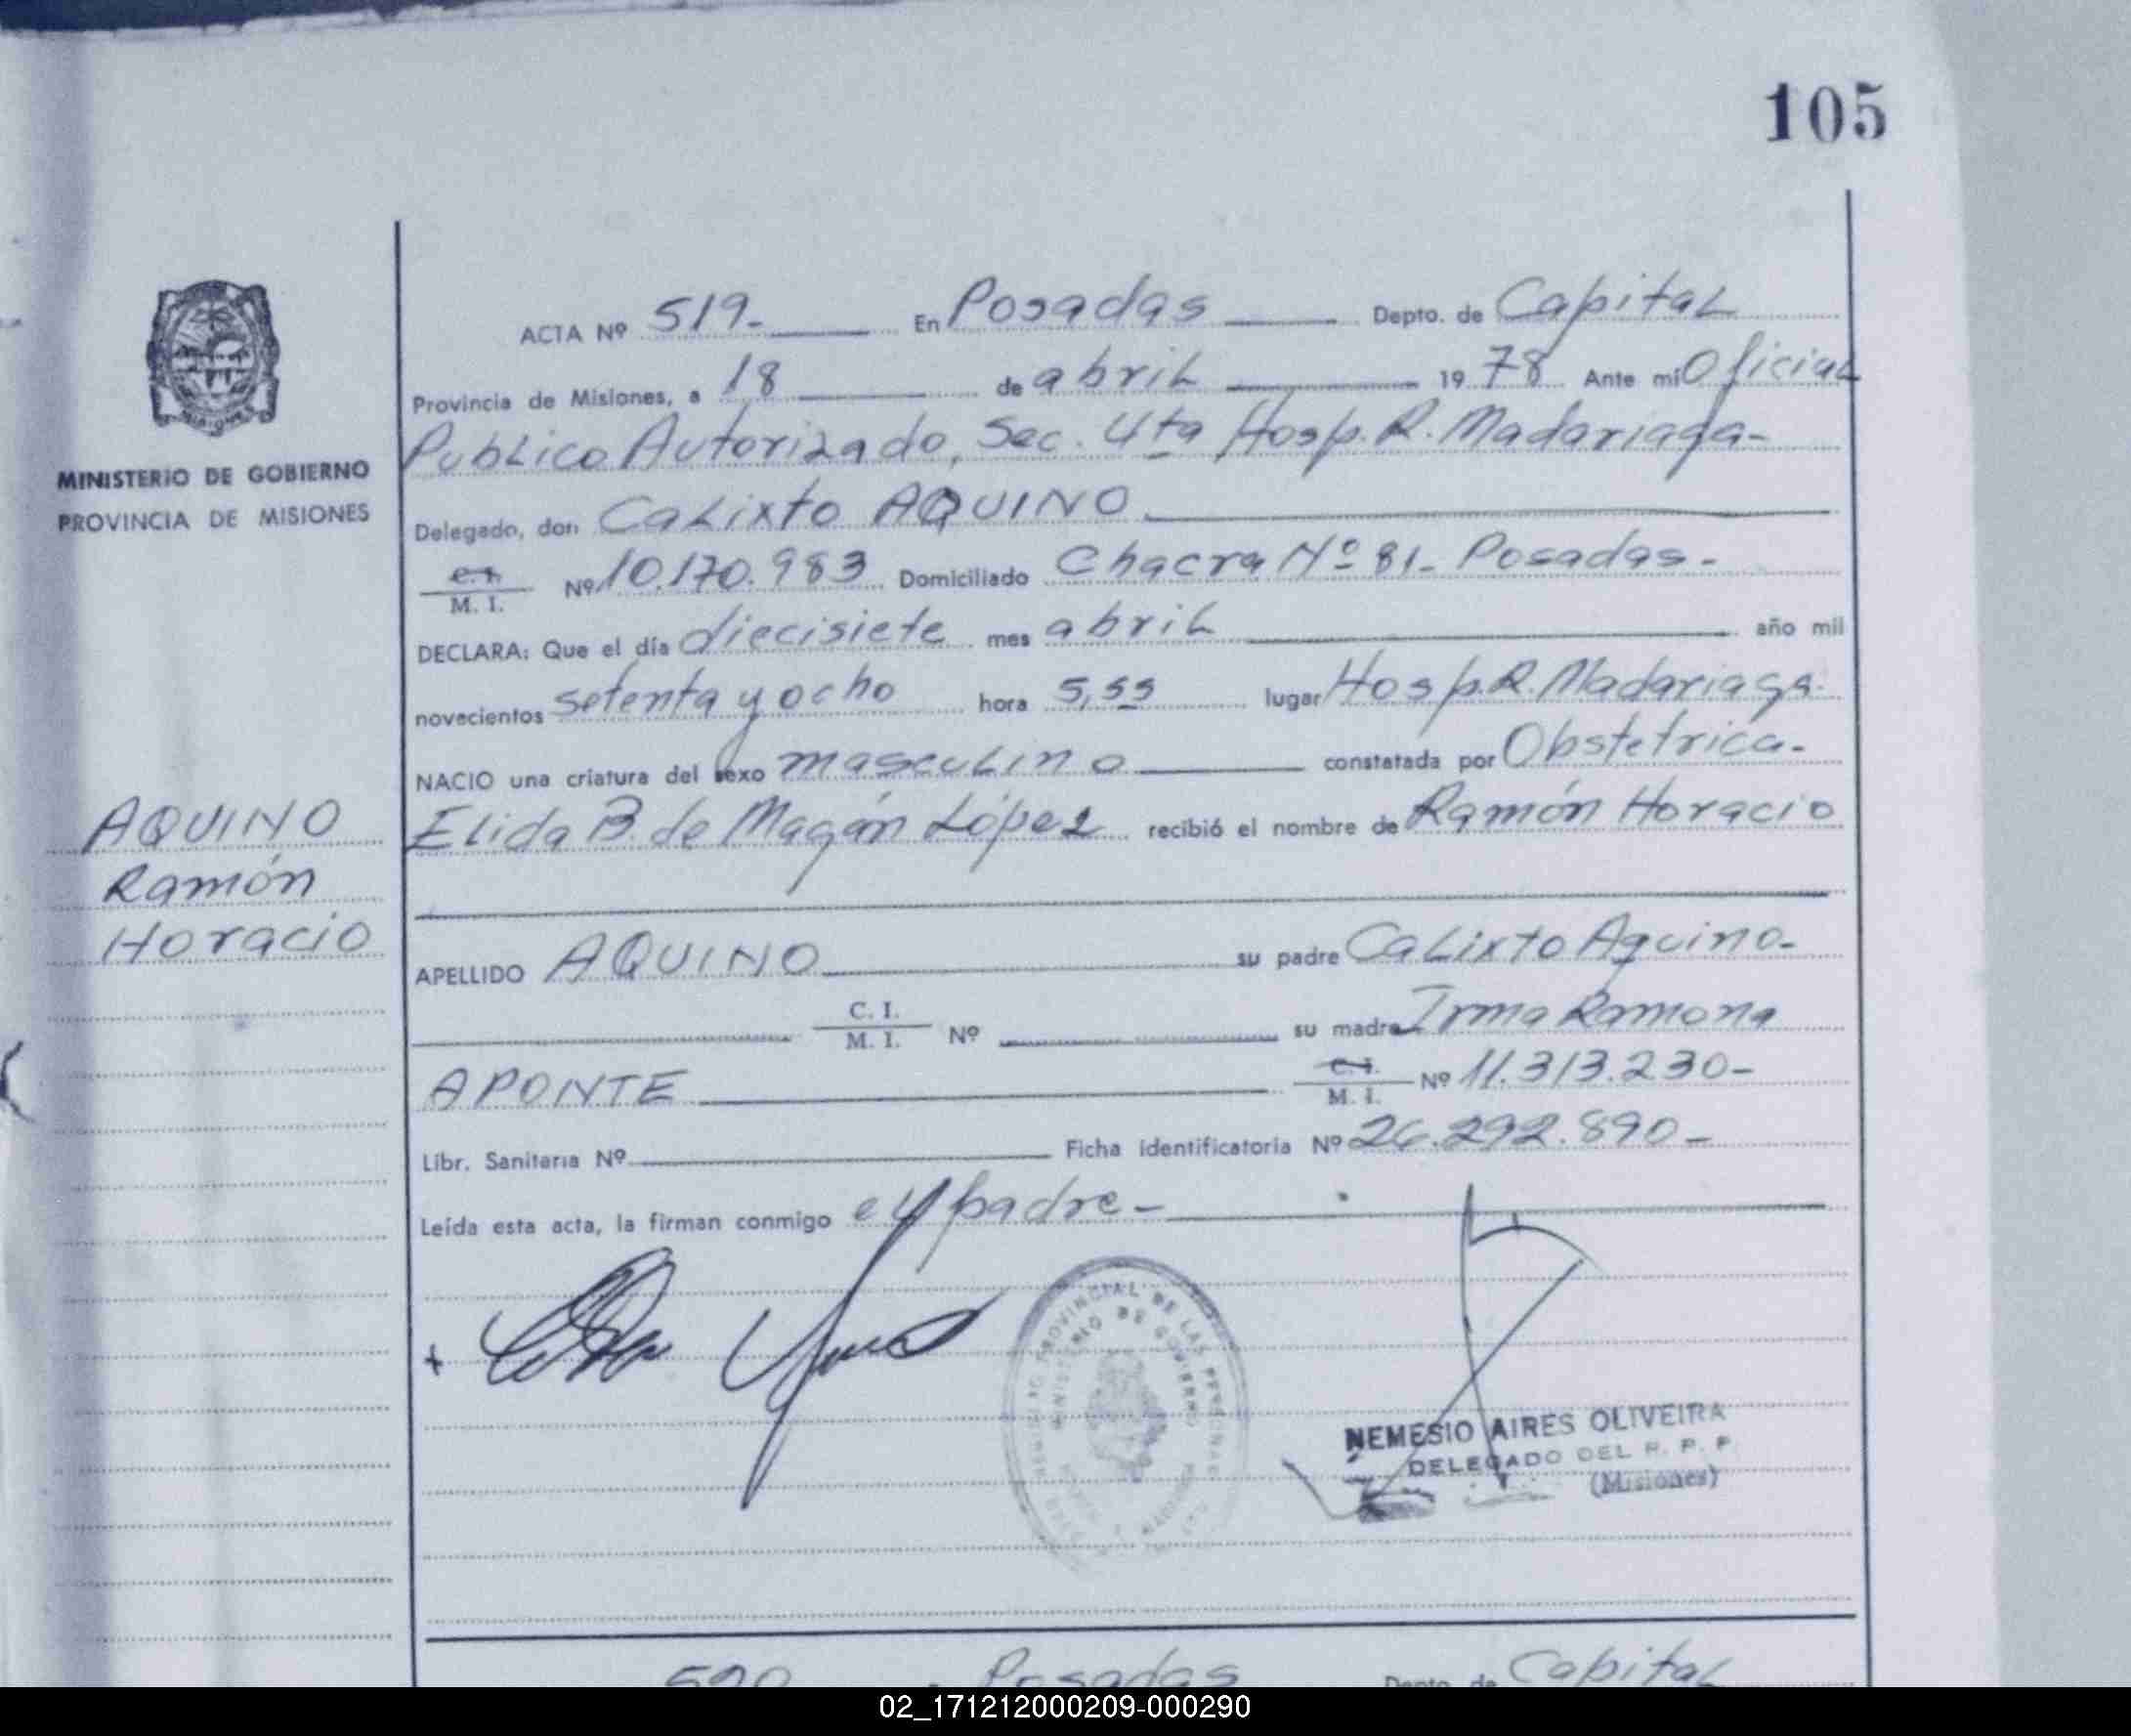 105
ACTA Nº 519- En Posadas Depto. de Capital
Provincia de Misiones, a 18 de abril 1978 Ante mí Oficial
Publico Autorizado, Sec. 4ta Hosp. R. Madariaga-
Delegado, don Calixto AQUINO
C. I. / M. I. Nº 10.170.983 Domiciliado Chacra Nº 81- Posadas-
DECLARA: Que el día diecisiete mes abril año mil
novecientos setenta y ocho hora 5,55 lugar Hosp. R. Madariaga.
NACIO una criatura del sexo masculino constatada por Obstetrica-
Elida B. de Magán López recibió el nombre de Ramón Horacio
APELLIDO AQUINO su padre Calixto Aquino-
C. I. / M. I. Nº su madre Irma Ramona
APONTE C. I. / M. I. Nº 11.313.230-
Libr. Sanitaria Nº Ficha identificatoria Nº 26.292.890-
Leída esta acta, la firman conmigo el padre-
MINISTERIO DE GOBIERNO
PROVINCIA DE MISIONES
AQUINO
Ramón
Horacio
PROVINCIAL DE LAS PERSONAS
MINISTERIO DE GOBIERNO
NEMESIO AIRES OLIVEIRA
DELEGADO DEL R. P. P.
(Misiones)
520 Posadas Depto. de Capital
02_171212000209-000290